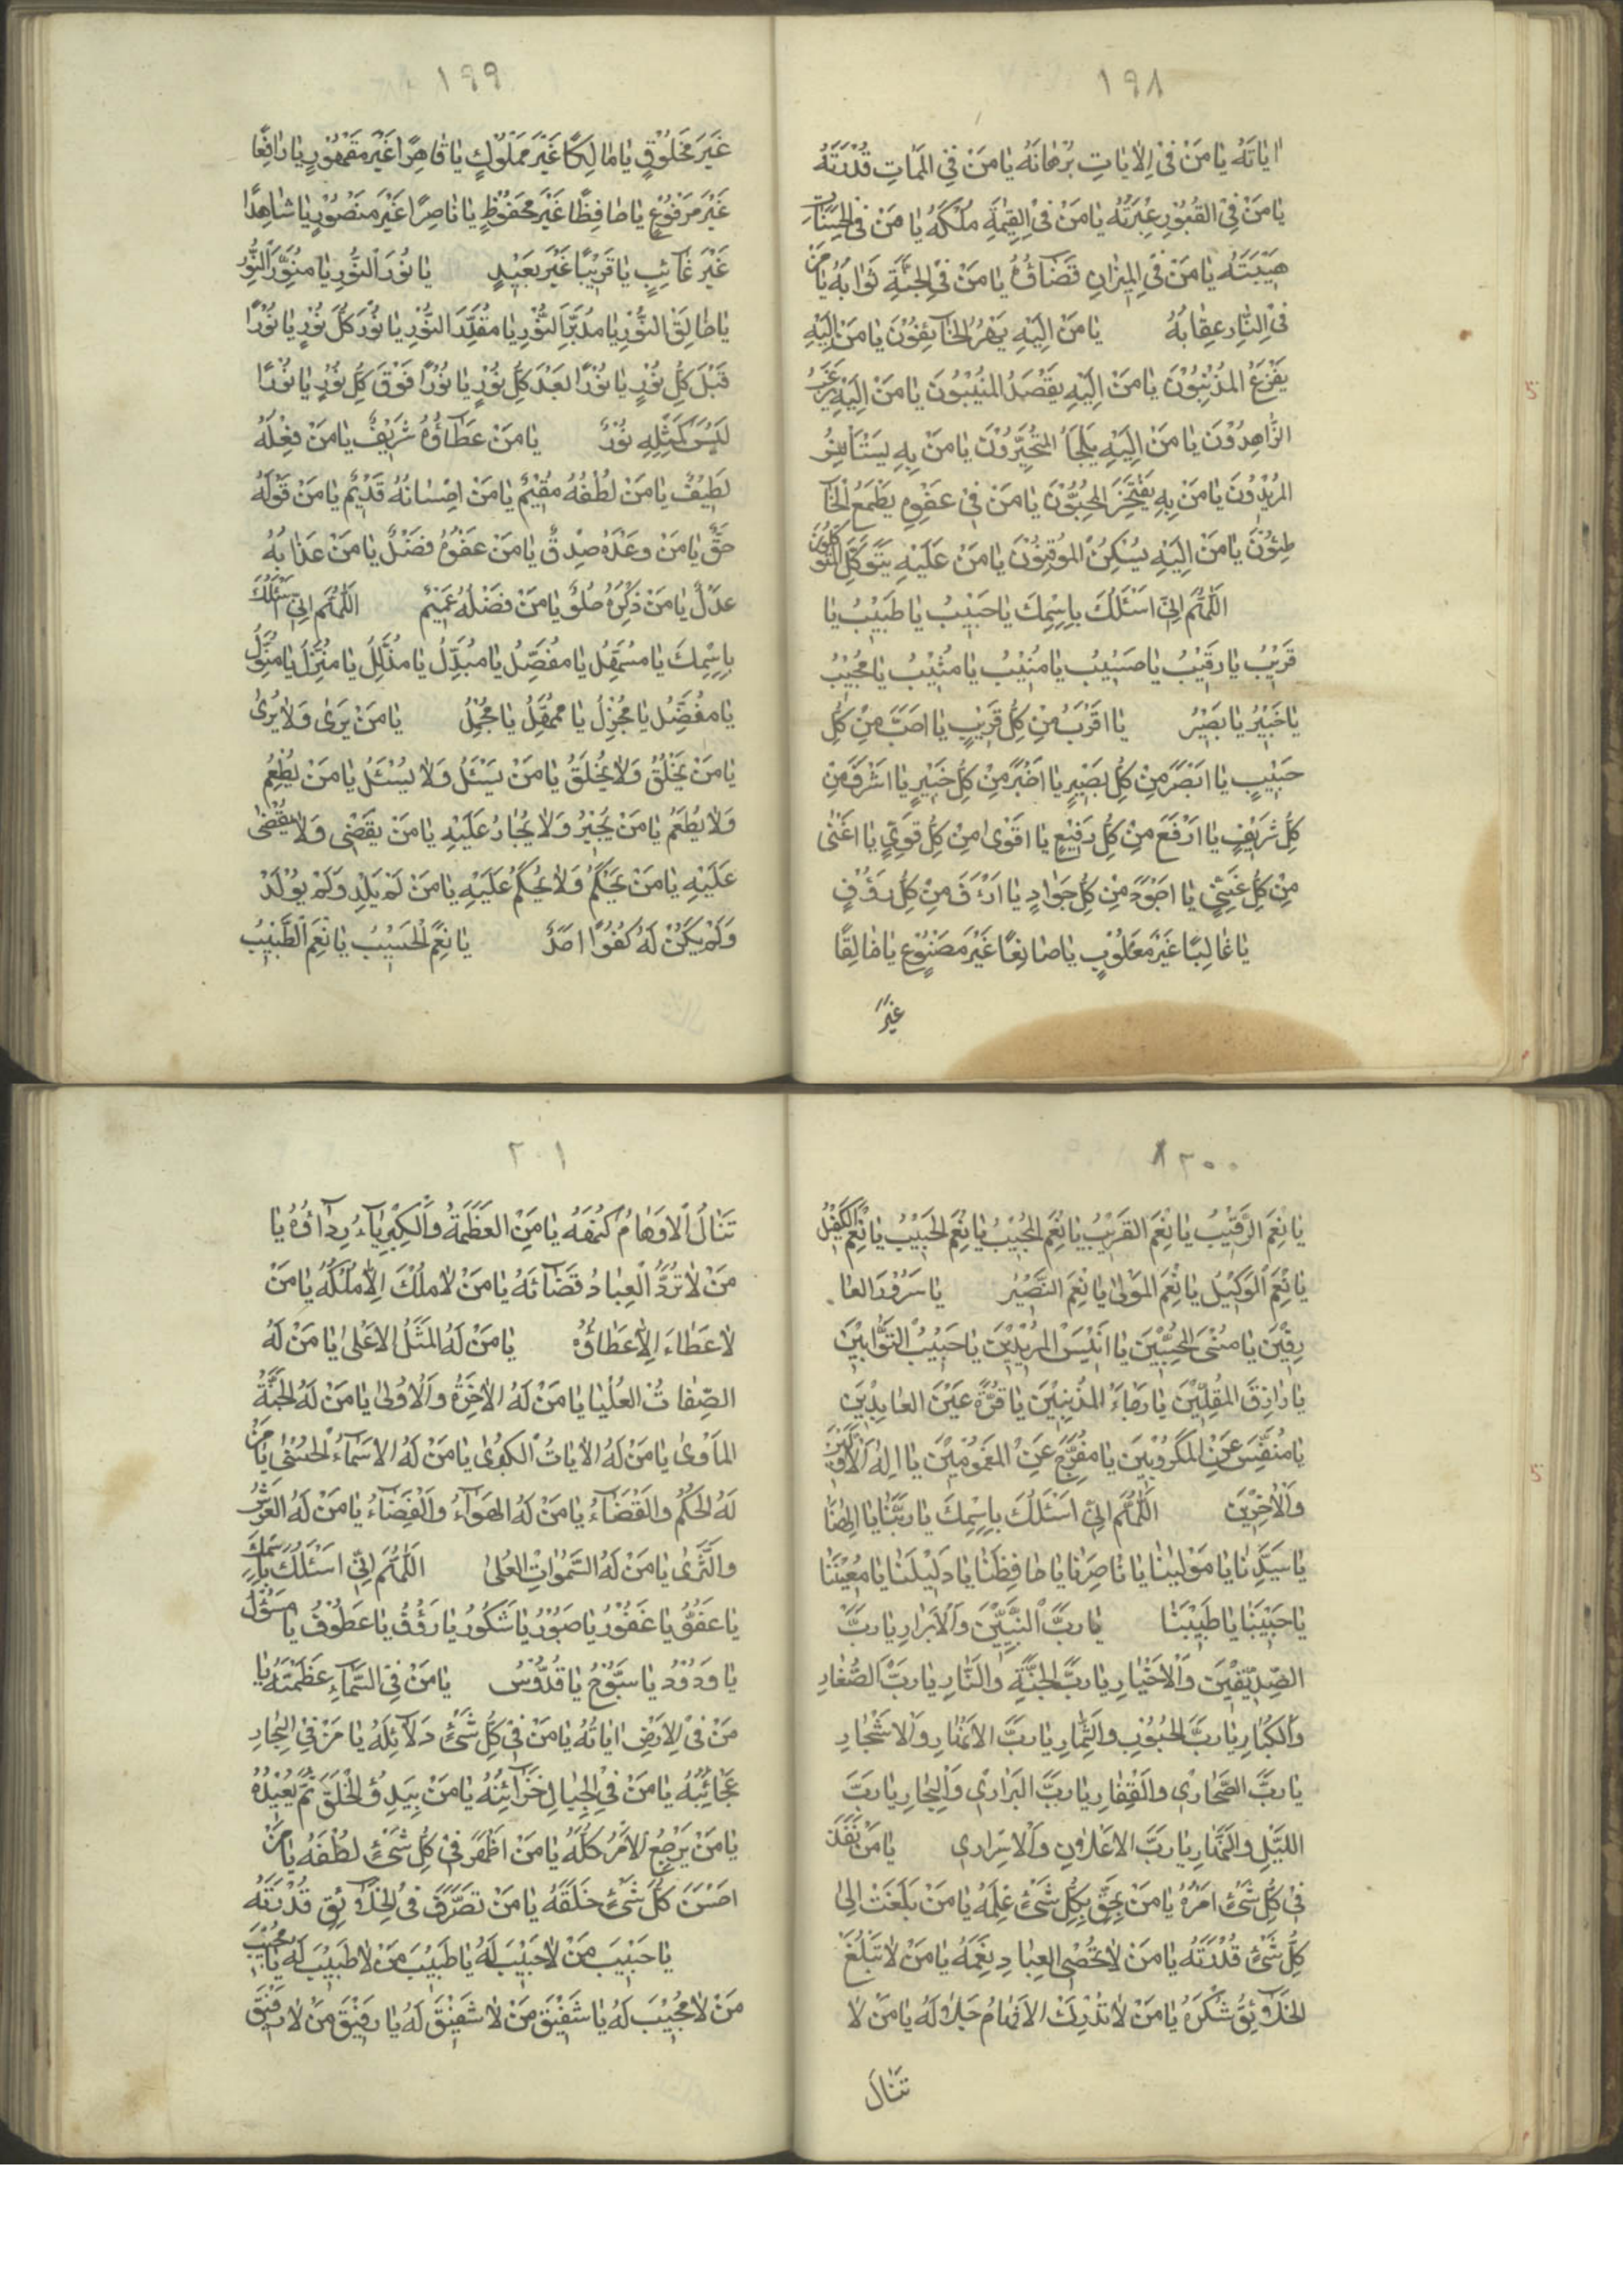 ١٩٨
اٰيَاتُهُ يَا مَنْ فِى الْاٰيَاتِ بُرْهَانُهُ يَا مَنْ فِى الْمَمَاتِ قُدْرَتُهُ
يَا مَنْ فِى الْقُبُورِ عِبْرَتُهُ يَا مَنْ فِى الْقِيٰمَةِ مُلْكُهُ يَا مَنْ فِى الْحِسَابِ
هَيْبَتُهُ يَا مَنْ فِى الْمِيزَانِ قَضَاؤُهُ يَا مَنْ فِى الْجَنَّةِ ثَوَابُهُ يَا مَنْ
فِى النَّارِ عِقَابُهُ يَا مَنْ اِلَيْهِ يَهْرُبُ الْخَآئِفُوْنَ يَا مَنْ اِلَيْهِ
يَفْزَعُ الْمُذْنِبُوْنَ يَا مَنْ اِلَيْهِ يَقْصَدُ الْمُنِيْبُوْنَ يَا مَنْ اِلَيْهِ يَرْغَبُ
الزَّاهِدُوْنَ يَا مَنْ اِلَيْهِ يَلْجَأُ الْمُتَحَيِّرُوْنَ يَا مَنْ بِهِ يَسْتَأْنِسُ
الْمُرِيْدُوْنَ يَا مَنْ بِهِ يَفْتَخِرُ الْمُحِبُّوْنَ يَا مَنْ فِى عَفْوِهِ يَطْمَعُ الْخَا
طِئُوْنَ يَا مَنْ اِلَيْهِ يَسْكُنُ الْمُوْقِنُوْنَ يَا مَنْ عَلَيْهِ يَتَوَكَّلُ الْمُتَوَكِّلُوْنَ
اَللّٰهُمَّ اِنِّى اَسْئَلُكَ بِاِسْمِكَ يَا حَبِيْبُ يَا طَبِيْبُ يَا
قَرِيْبُ يَا رَقِيْبُ يَا حَسِيْبُ يَا مُنِيْبُ يَا مُثِيْبُ يَا مُجِيْبُ
يَا خَبِيْرُ يَا بَصِيْرُ يَا اَقْرَبَ مِنْ كُلِّ قَرِيْبٍ يَا اَحَبَّ مِنْ كُلِّ
حَبِيْبٍ يَا اَبْصَرَ مِنْ كُلِّ بَصِيْرٍ يَا اَخْبَرَ مِنْ كُلِّ خَبِيْرٍ يَا اَشْرَفَ مِنْ
كُلِّ شَرِيْفٍ يَا اَرْفَعَ مِنْ كُلِّ رَفِيْعٍ يَا اَقْوٰى مِنْ كُلِّ قَوِىٍّ يَا اَغْنٰى
مِنْ كُلِّ غَنِىٍّ يَا اَجْوَدَ مِنْ كُلِّ جَوَادٍ يَا اَرْءَفَ مِنْ كُلِّ رَؤُفٍ
يَا غَالِبًا غَيْرَ مَغْلُوْبٍ يَا صَانِعًا غَيْرَ مَصْنُوْعٍ يَا خَالِقًا
غَيْرَ
١٩٩
غَيْرَ مَخْلُوْقٍ يَا مَالِكًا غَيْرَ مَمْلُوْكٍ يَا قَاهِرًا غَيْرَ مَقْهُوْرٍ يَا رَافِعًا
غَيْرَ مَرْفُوْعٍ يَا حَافِظًا غَيْرَ مَحْفُوْظٍ يَا نَاصِرًا غَيْرَ مَنْصُوْرٍ يَا شَاهِدًا
غَيْرَ غَآئِبٍ يَا قَرِيْبًا غَيْرَ بَعِيْدٍ يَا نُوْرَ النُّوْرِ يَا مُنَوِّرَ النُّوْرِ
يَا خَالِقَ النُّوْرِ يَا مُدَبِّرَ النُّوْرِ يَا مُقَدِّرَ النُّوْرِ يَا نُوْرَ كُلِّ نُوْرٍ يَا نُوْرًا
قَبْلَ كُلِّ نُوْرٍ يَا نُوْرًا بَعْدَ كُلِّ نُوْرٍ يَا نُوْرًا فَوْقَ كُلِّ نُوْرٍ يَا نُوْرًا
لَيْسَ كَمِثْلِهِ نُوْرٌ يَا مَنْ عَطَآؤُهُ شَرِيْفٌ يَا مَنْ فِعْلُهُ
لَطِيْفٌ يَا مَنْ لُطْفُهُ مُقِيْمٌ يَا مَنْ اِحْسَانُهُ قَدِيْمٌ يَا مَنْ قَوْلُهُ
حَقٌّ يَا مَنْ وَعْدُهُ صِدْقٌ يَا مَنْ عَفْوُهُ فَضْلٌ يَا مَنْ عَذَابُهُ
عَدْلٌ يَا مَنْ ذِكْرُهُ حُلْوٌ يَا مَنْ فَضْلُهُ عَمِيْمٌ اَللّٰهُمَّ اِنِّى اَسْئَلُكَ
بِاِسْمِكَ يَا مُسَهِّلُ يَا مُفَصِّلُ يَا مُبَدِّلُ يَا مُذَلِّلُ يَا مُنَزِّلُ يَا مُنَوِّلُ
يَا مُفْضِلُ يَا مُجْزِلُ يَا مُمْهِلُ يَا مُجْمِلُ يَا مَنْ يَرٰى وَلَا يُرٰى
يَا مَنْ يَخْلُقُ وَلَا يُخْلَقُ يَا مَنْ يَسْئَلُ وَلَا يُسْئَلُ يَا مَنْ يُطْعِمُ
وَلَا يُطْعَمُ يَا مَنْ يُجِيْرُ وَلَا يُجَارُ عَلَيْهِ يَا مَنْ يَقْضٰى وَلَا يُقْضٰى
عَلَيْهِ يَا مَنْ يَحْكُمُ وَلَا يُحْكَمُ عَلَيْهِ يَا مَنْ لَمْ يَلِدْ وَلَمْ يُوْلَدْ
وَلَمْ يَكُنْ لَهُ كُفُوًا اَحَدٌ يَا نِعْمَ الْحَسِيْبُ يَا نِعْمَ الطَّبِيْبُ
٢٠٠
يَا نِعْمَ الرَّقِيْبُ يَا نِعْمَ الْقَرِيْبُ يَا نِعْمَ الْمُجِيْبُ يَا نِعْمَ الْحَبِيْبُ يَا نِعْمَ الْكَفِيْلُ
يَا نِعْمَ الْوَكِيْلُ يَا نِعْمَ الْمَوْلٰى يَا نِعْمَ النَّصِيْرُ يَا سُرُوْرَ الْعَا
رِفِيْنَ يَا مُنَى الْمُحِبِّيْنَ يَا اَنِيْسَ الْمُرِيْدِيْنَ يَا حَبِيْبَ التَّوَّابِيْنَ
يَا رَازِقَ الْمُقِلِّيْنَ يَا رَجَاءَ الْمُذْنِبِيْنَ يَا قُرَّةَ عَيْنِ الْعَابِدِيْنَ
يَا مُنَفِّسَ عَنِ الْمَكْرُوْبِيْنَ يَا مُفَرِّجَ عَنِ الْمَغْمُوْمِيْنَ يَا اِلٰهَ الْاَوَّلِيْنَ
وَالْاٰخِرِيْنَ اَللّٰهُمَّ اِنِّى اَسْئَلُكَ بِاِسْمِكَ يَا رَبَّنَا يَا اِلٰهَنَا
يَا سَيِّدَنَا يَا مَوْلٰينَا يَا نَاصِرَنَا يَا حَافِظَنَا يَا دَلِيْلَنَا يَا مُعِيْنَنَا
يَا حَبِيْبَنَا يَا طَبِيْبَنَا يَا رَبَّ النَّبِيِّيْنَ وَالْاَبْرَارِ يَا رَبَّ
الصِّدِّيْقِيْنَ وَالْاَخْيَارِ يَا رَبَّ الْجَنَّةِ وَالنَّارِ يَا رَبَّ الصِّغَارِ
وَالْكِبَارِ يَا رَبَّ الْحُبُوْبِ وَالثِّمَارِ يَا رَبَّ الْاَنْهَارِ وَالْاَشْجَارِ
يَا رَبَّ الصَّحَارِى وَالْقِفَارِ يَا رَبَّ الْبَرَارِى وَالْبِحَارِ يَا رَبَّ
اللَّيْلِ وَالنَّهَارِ يَا رَبَّ الْاِعْلَانِ وَالْاِسْرَارِى يَا مَنْ نَفَذَ
فِى كُلِّ شَىْءٍ اَمْرُهُ يَا مَنْ لَحِقَ بِكُلِّ شَىْءٍ عِلْمُهُ يَا مَنْ بَلَغَتْ اِلٰى
كُلِّ شَىْءٍ قُدْرَتُهُ يَا مَنْ لَا تُحْصِى الْعِبَادُ نِعَمَهُ يَا مَنْ لَا تَبْلُغُ
الْخَلَآئِقُ شُكْرَهُ يَا مَنْ لَا تُدْرِكُ الْاَفْهَامُ جَلَالَهُ يَا مَنْ لَا
تَنَالُ
٢٠١
تَنَالُ الْاَوْهَامُ كُنْهَهُ يَا مَنِ الْعَظَمَةُ وَالْكِبْرِيَآءُ رِدَآؤُهُ يَا
مَنْ لَا تَرُدُّ الْعِبَادُ قَضَآئَهُ يَا مَنْ لَا مُلْكَ اِلَّا مُلْكُهُ يَا مَنْ
لَا عَطَاءَ اِلَّا عَطَاؤُهُ يَا مَنْ لَهُ الْمَثَلُ الْاَعْلٰى يَا مَنْ لَهُ
الصِّفَاتُ الْعُلْيَا يَا مَنْ لَهُ الْاٰخِرَةُ وَالْاُوْلٰى يَا مَنْ لَهُ الْجَنَّةُ
الْمَأْوٰى يَا مَنْ لَهُ الْاٰيَاتُ الْكُبْرٰى يَا مَنْ لَهُ الْاَسْمَآءُ الْحُسْنٰى يَا مَنْ
لَهُ الْحُكْمُ وَالْقَضَآءُ يَا مَنْ لَهُ الْهَوَآءُ وَالْفَضَآءُ يَا مَنْ لَهُ الْعَرْشُ
وَالثَّرٰى يَا مَنْ لَهُ السَّمٰوَاتِ الْعُلٰى اَللّٰهُمَّ اِنِّى اَسْئَلُكَ بِاِسْمِكَ
يَا عَفُوُّ يَا غَفُوْرُ يَا صَبُوْرُ يَا شَكُوْرُ يَا رَؤُفُ يَا عَطُوْفُ يَا مَسْؤُلُ
يَا وَدُوْدُ يَا سُبُّوْحُ يَا قُدُّوْسُ يَا مَنْ فِى السَّمَآءِ عَظَمَتُهُ يَا
مَنْ فِى الْاَرْضِ اٰيَاتُهُ يَا مَنْ فِى كُلِّ شَىْءٍ دَلَآئِلُهُ يَا مَنْ فِى الْبِحَارِ
عَجَائِبُهُ يَا مَنْ فِى الْجِبَالِ خَزَآئِنُهُ يَا مَنْ يَبْدِؤُ الْخَلْقَ ثُمَّ يُعِيْدُهُ
يَا مَنْ يَرْجِعُ الْاَمْرُ كُلُّهُ يَا مَنْ اَظْهَرَ فِى كُلِّ شَىْءٍ لُطْفَهُ يَا مَنْ
اَحْسَنَ كُلَّ شَىْءٍ خَلَقَهُ يَا مَنْ تَصَرَّفَ فِى الْخَلَآئِقِ قُدْرَتُهُ
يَا حَبِيْبَ مَنْ لَا حَبِيْبَ لَهُ يَا طَبِيْبَ مَنْ لَا طَبِيْبَ لَهُ يَا مُجِيْبَ
مَنْ لَا مُجِيْبَ لَهُ يَا شَفِيْقَ مَنْ لَا شَفِيْقَ لَهُ يَا رَفِيْقَ مَنْ لَا رَفِيْقَ